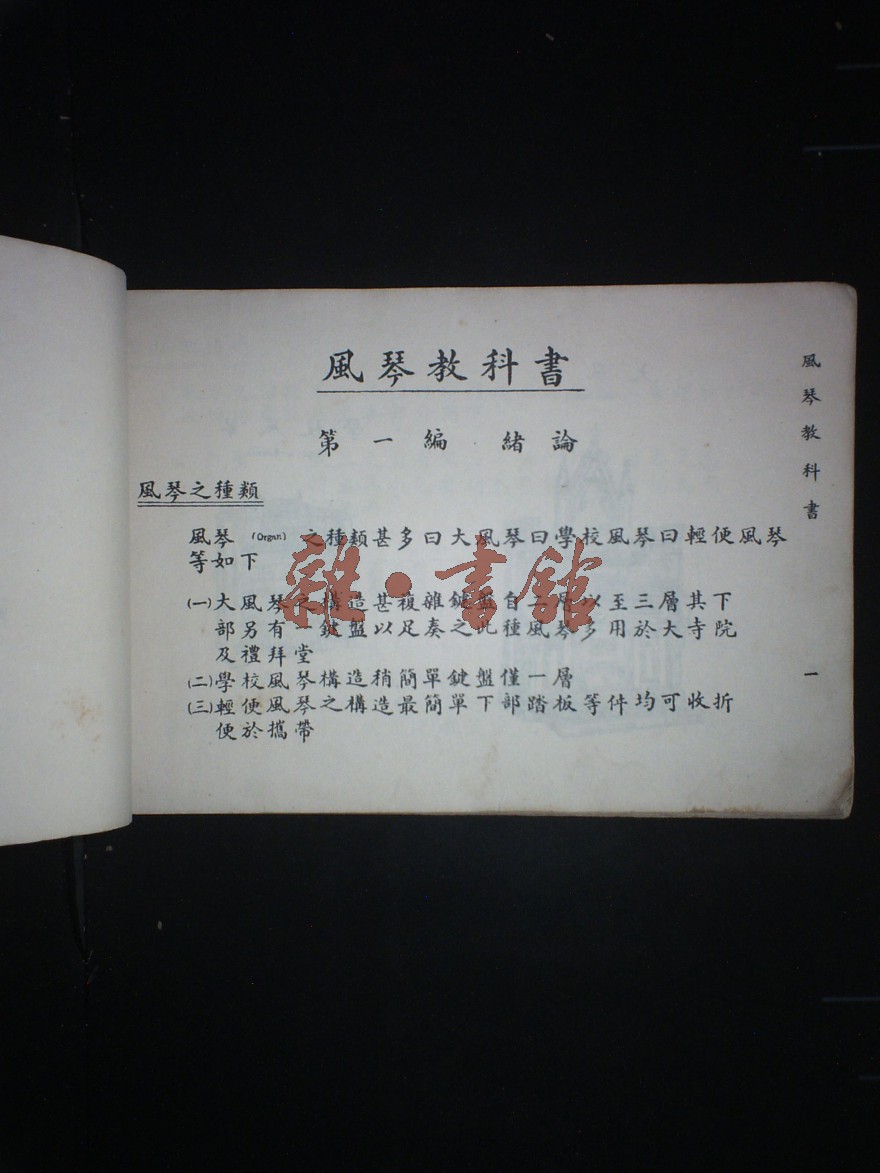 風琴教科書
第一編 緒論
風琴之種類
風琴 (Organ) 之種類甚多曰大風琴曰學校風琴曰輕便風琴
等如下
(一)大風琴之構造甚複雜鍵盤自二層以至三層其下
部另有一鍵盤以足奏之此種風琴多用於大寺院
及禮拜堂
(二)學校風琴構造稍簡單鍵盤僅一層
(三)輕便風琴之構造最簡單下部踏板等件均可收折
便於攜帶
風琴教科書
一
雜·書館